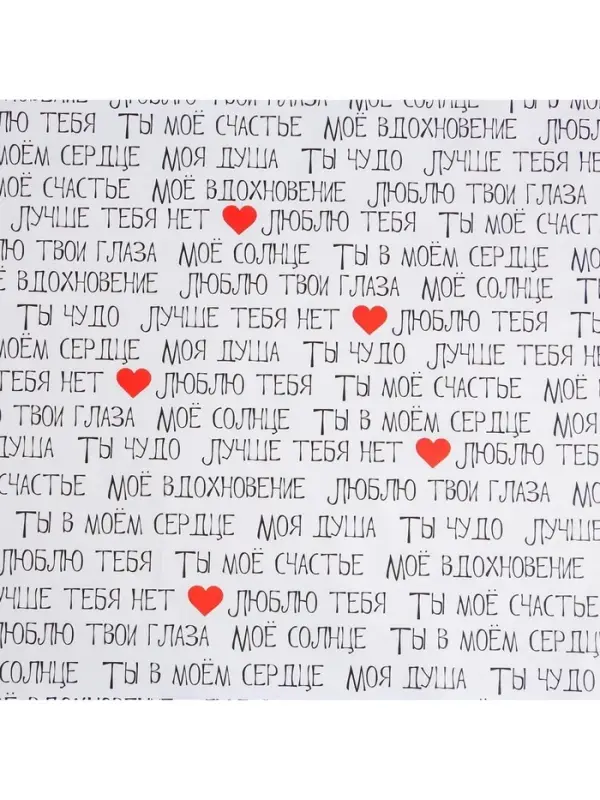 ЛЮБЛЮ ТВОИ ГЛАЗА МОЁ СОЛНЦЕ ТЫ В
ТЕБЯ ТЫ МОЁ СЧАСТЬЕ МОЁ ВДОХНОВЕНИЕ ЛЮБЛ
МОЁМ СЕРДЦЕ МОЯ ДУША ТЫ ЧУДО ЛУЧШЕ ТЕБЯ НЕ
МОЁ СЧАСТЬЕ МОЁ ВДОХНОВЕНИЕ ЛЮБЛЮ ТВОИ ГЛАЗА
ЛУЧШЕ ТЕБЯ НЕТ ЛЮБЛЮ ТЕБЯ ТЫ МОЁ СЧАСТ
ЛЮ ТВОИ ГЛАЗА МОЁ СОЛНЦЕ ТЫ В МОЁМ СЕРДЦЕ МО
Ё ВДОХНОВЕНИЕ ЛЮБЛЮ ТВОИ ГЛАЗА МОЁ СОЛНЦЕ Т
ТЫ ЧУДО ЛУЧШЕ ТЕБЯ НЕТ ЛЮБЛЮ ТЕБЯ Т
МОЁМ СЕРДЦЕ МОЯ ДУША ТЫ ЧУДО ЛУЧШЕ ТЕБЯ НЕ
ТЕБЯ НЕТ ЛЮБЛЮ ТЕБЯ ТЫ МОЁ СЧАСТЬЕ МОЁ
ТВОИ ГЛАЗА МОЁ СОЛНЦЕ ТЫ В МОЁМ СЕРДЦЕ МОЯ
ДУША ТЫ ЧУДО ЛУЧШЕ ТЕБЯ НЕТ ЛЮБЛЮ ТЕБ
СЧАСТЬЕ МОЁ ВДОХНОВЕНИЕ ЛЮБЛЮ ТВОИ ГЛАЗА МО
ТЫ В МОЁМ СЕРДЦЕ МОЯ ДУША ТЫ ЧУДО ЛУЧШЕ
ЛЮБЛЮ ТЕБЯ ТЫ МОЁ СЧАСТЬЕ МОЁ ВДОХНОВЕНИЕ
УЧШЕ ТЕБЯ НЕТ ЛЮБЛЮ ТЕБЯ ТЫ МОЁ СЧАСТЬЕ
ЛЮБЛЮ ТВОИ ГЛАЗА МОЁ СОЛНЦЕ ТЫ В МОЁМ СЕРДЦ
СОЛНЦЕ ТЫ В МОЁМ СЕРДЦЕ МОЯ ДУША ТЫ ЧУДО
Ё ВДОХНОВЕНИЕ